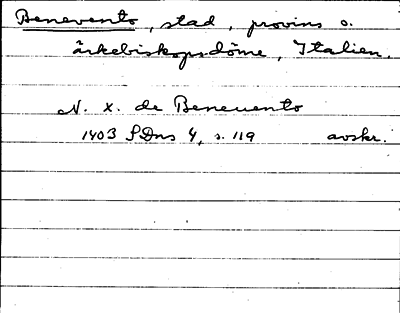 Benevento, stad, provins o.
ärkebiskopsdöme, Italien.
N. x. de Beneuento
1403 SDns 4, s. 119 avskr.